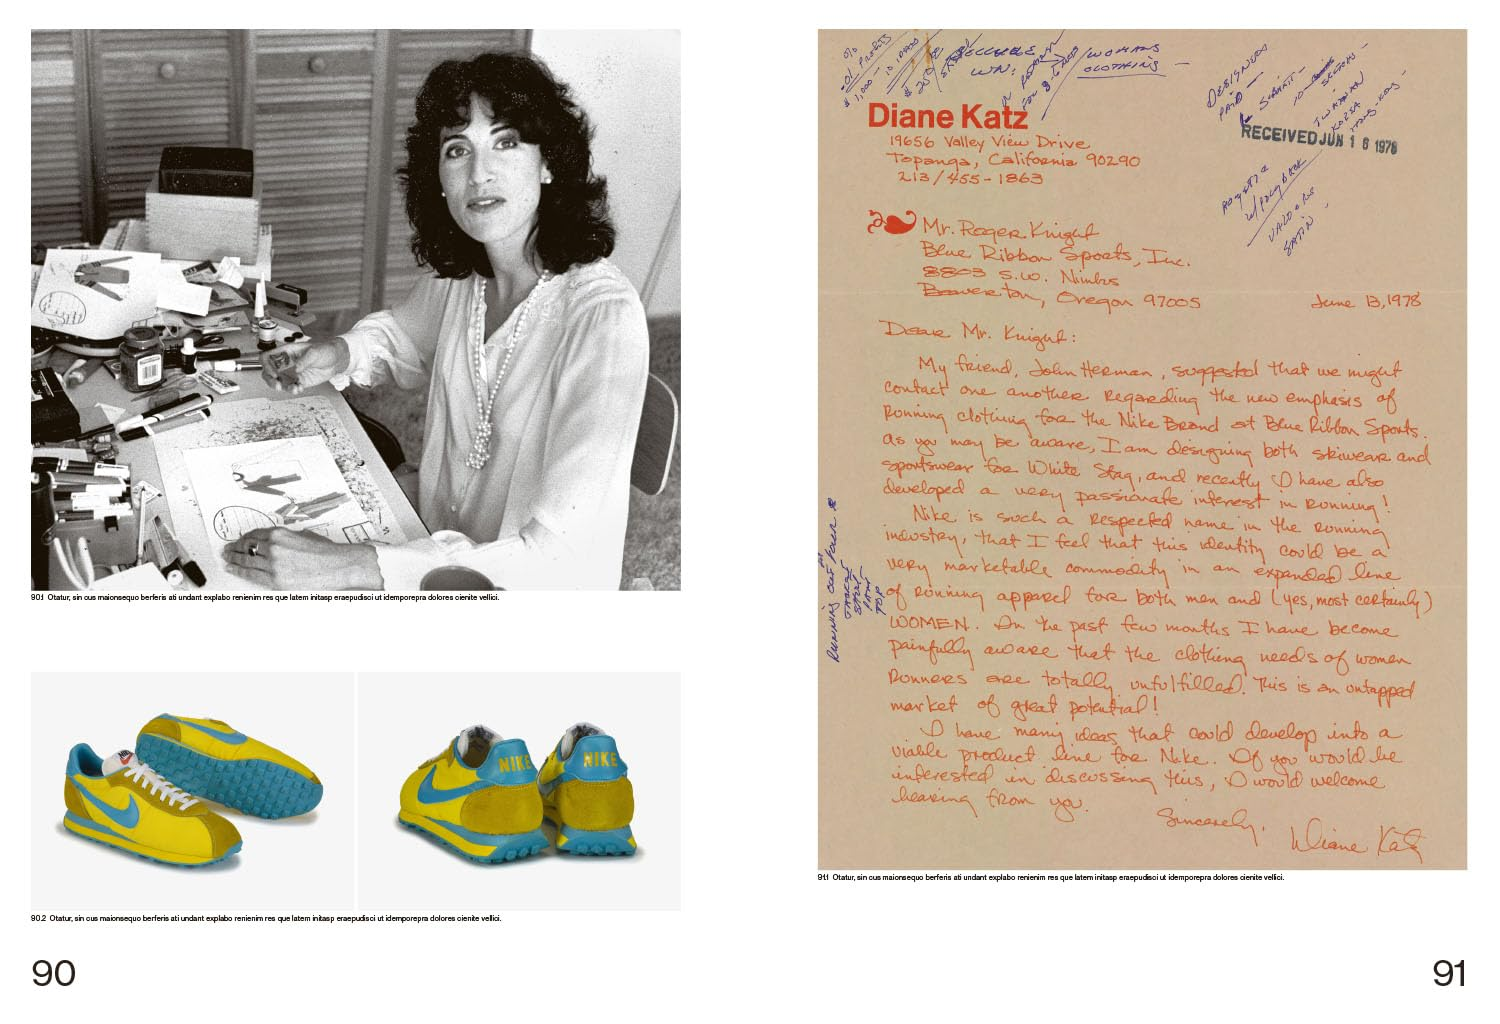 90.1 Otatur, sin cus maionsequo berferis ati undant explabo renienim res que latem initasp eraepudisci ut idemporepra dolores cienite vellici.
NIKE
NIKE
90.2 Otatur, sin cus maionsequo berferis ati undant explabo renienim res que latem initasp eraepudisci ut idemporepra dolores cienite vellici.
90
WOMANS
CLOTHING
DESIGNERS
PAID
Diane Katz
19656 Valley View Drive
Topanga, California 90290
213/455-1863
RECEIVED JUN 16 1978
Mr. Roger Knight
Blue Ribbon Sports, Inc.
8803 S.W. Nimbus
Beaverton, Oregon 97005
June 13, 1978
Dear Mr. Knight:
My friend, John Herman, suggested that we might
contact one another regarding the new emphasis of
running clothing for the Nike Brand at Blue Ribbon Sports.
As you may be aware, I am designing both skiwear and
sportswear for White Stag, and recently I have also
developed a very passionate interest in running!
Nike is such a respected name in the running
industry, that I feel that this identity could be a
very marketable commodity in an expanded line
of running apparel for both men and (yes, most certainly)
WOMEN. In the past few months I have become
painfully aware that the clothing needs of women
runners are totally unfulfilled. This is an untapped
market of great potential!
I have many ideas that could develop into a
viable product line for Nike. If you would be
interested in discussing this, I would welcome
hearing from you.
Sincerely,
Diane Katz
91.1 Otatur, sin cus maionsequo berferis ati undant explabo renienim res que latem initasp eraepudisci ut idemporepra dolores cienite vellici.
91